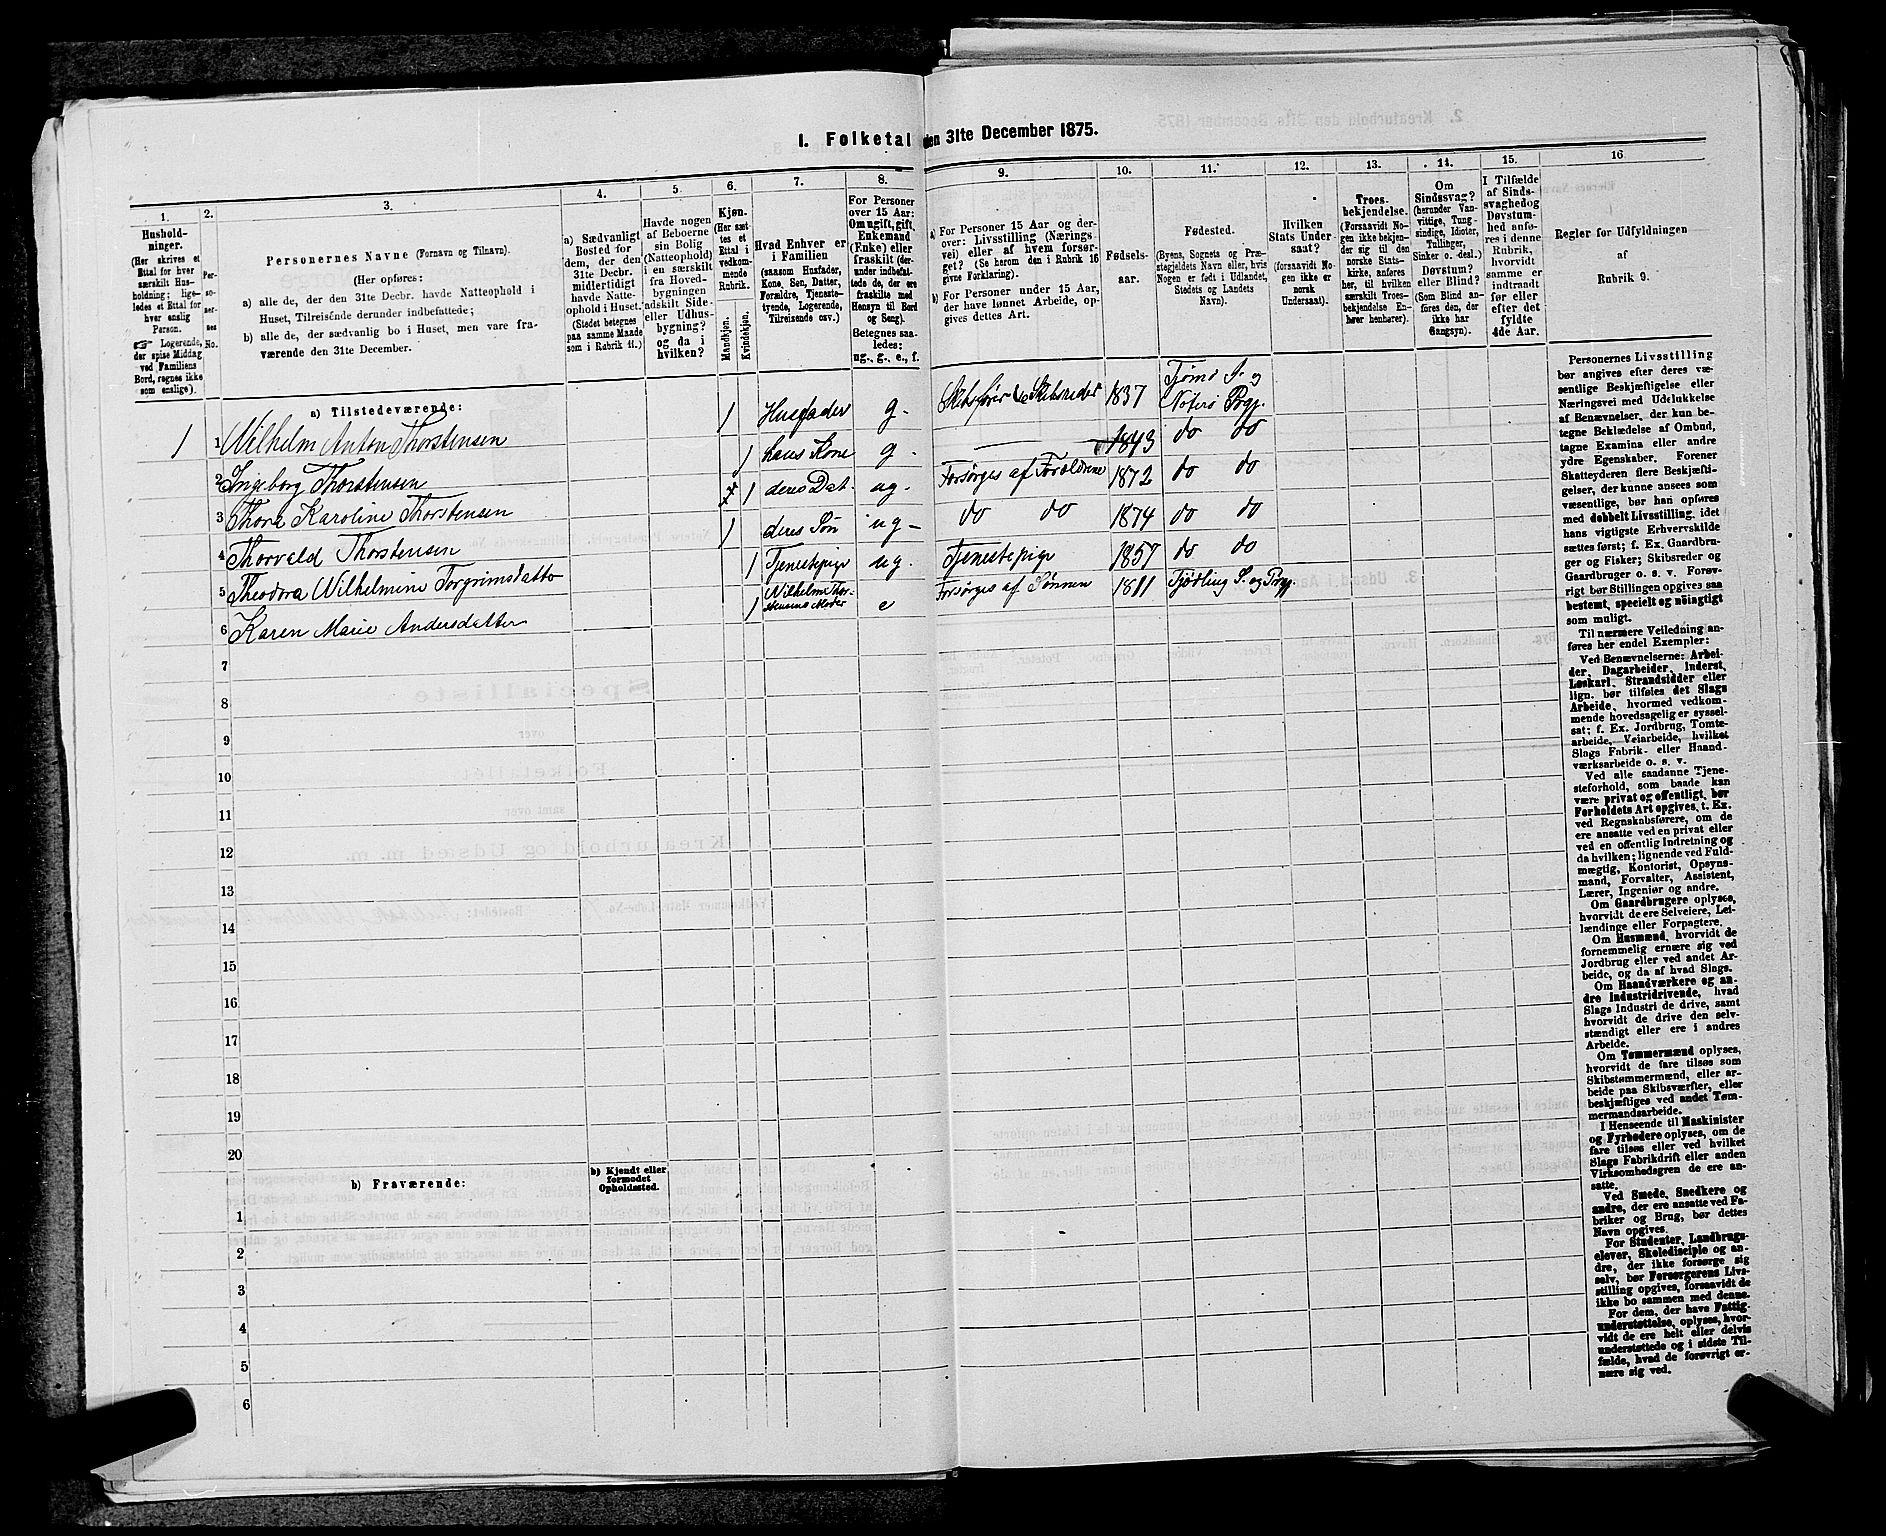 I. Folketal den 31te December 1875.
1.
Hushold-
ninger.
(Her skrives et
Ettal for hver
særskilt Hus-
holdning; lige-
ledes et Ettal for
hver enslig
Person.
☞ Logerende,
der spise Middag
ved Familiens
Bord, regnes ikke
som enslige).
2.
Per-
so-
ner-
nes
No.
3.
Personernes Navne (Fornavn og Tilnavn).
(Her opføres:
a) alle de, der den 31te Decbr. havde Natteophold i
Huset, Tilreisende derunder indbefattede;
b) alle de, der sædvanlig bo i Huset, men vare fra-
værende den 31te December.
4.
a) Sædvanligt
Bosted for
dem, der den
31te Decbr.
midlertidigt
havde Natte-
ophold i Huset.
(Stedet betegnes
paa samme Maade
som i Rubrik 11.)
5.
Havde nogen
af Beboerne
sin Bolig
(Natteophold)
i en særskilt
fra Hoved-
bygningen
adskilt Side-
eller Udhus-
bygning?
og da i
hvilken?
6.
Kjøn.
(Her sæt-
tes et
Ettal i
vedkom-
mende
Rubrik.
Mandkjøn.
Kvindekjøn.
7.
Hvad Enhver er
i Familien
(saasom Husfader,
Kone, Søn, Datter,
Forældre, Tjeneste-
tyende, Logerende,
Tilreisende osv.)
8.
For Personer
over 15 Aar:
Om ugift, gift,
Enkemand
(Enke) eller
fraskilt (der-
under indbefat-
tede de, der ere
fraskilte med
Hensyn til Bord
og Seng).
Betegnes saa-
ledes:
ug., g., e., f.
9.
a) For Personer 15 Aar og der-
over: Livsstilling (Nærings-
vei) eller af hvem forsør-
get? (Se herom den i Rubrik 16
givne Forklaring).
b) For Personer under 15 Aar,
der have lønnet Arbeide, op-
gives dettes Art.
10.
Fødsels-
aar.
11.
Fødested.
(Byens, Sognets og Præ-
stegjeldets Navn eller, hvis
Nogen er født i Udlandet,
Stedets og Landets
Navn).
12.
Hvilken
Stats Under-
saat?
(forsaavidt No-
gen ikke er
norsk
Undersaat).
13.
Troes-
bekjendelse.
(Forsaavidt No-
gen ikke bekjen-
der sig til den
norske Stats-
kirke, anføres
her, til hvilken
særskilt Troes-
bekjendelse En-
hver henhører).
14.
Om
Sindssvag?
(herunder Van-
vittige, Tung-
sindige, Idioter,
Tullinger,
Sinker o. desl.)
Døvstum?
eller Blind?
(Som Blind an-
føres den, der
ikke har
Gangsyn).
15.
I Tilfælde
af Sinds-
svaghed og
Døvstum-
hed anfø-
res i denne
Rubrik,
hvorvidt
samme er
indtraadt
før eller
efter det
fyldte
4de Aar.
16
Regler for Udfyldningen
af
Rubrik 9.
a) Tilstedeværende:
1 1 Wilhelm Anton Thorstensen 1 Husfader g. Skibsfører & Skibsreder 1837 Tjømø S. og Nøterø Prgj.
2 Ingeborg Thorstensen 1 hans Kone g. — 1843 do do
3 Thora Karoline Thorstensen 1 deres Dat. ug. Forsørges af Forældrene 1872 do do
4 Thorvald Thorstensen 1 deres Søn ug- do do 1874 do do
5 Theodora Wilhelmine Torgrimsdatter 1 Tjenestepige ug. Tjenestepige 1857 do do
6 Karen Marie Andersdatter 1 Wilhelm Thorstensens Moder e Forsørges af Sønnen 1811 Tjødling S. og Prgj.
7
8
9
10
11
12
13
14
15
16
17
18
19
20
b) Fraværende:
b) Kjendt eller
formodet
Opholdssted.
1
2
3
4
5
6
Personernes Livsstilling
bør angives efter deres væ-
sentlige Beskjæftigelse eller
Næringsvei med Udelukkelse
af Benævnelser, der kun be-
tegne Beklædelse af Ombud,
tagne Examina eller andre
ydre Egenskaber. Forener
Skatteyderen flere Beskjæfti-
gelser, der kunne ansees som
væsentlige, bør han opføres
med dobbelt Livsstilling, idet
hans vigtigste Erhvervskilde
sættes først; f. Ex. Gaardbru-
ger og Fisker; Skibsreder og
Gaardbruger o. s. v. Forøv-
rigt bør Stillingen opgives saa
bestemt, specielt og nøiagtigt
som muligt.
Til nærmere Veiledning an-
føres her endel Exempler:
Ved Benævnelserne: Arbei-
der, Dagarbeider, Inderst,
Løskarl, Strandsidder eller
lign. bør tilføies det Slags
Arbeide, hvormed vedkom-
mende hovedsagelig er syssel-
sat; f. Ex. Jordbrug, Tomte-
arbeide, Veiarbeide, hvilket
Slags Fabrik- eller Haand-
værksarbeide o. s. v.
Ved alle saadanne Tjene-
steforhold, som baade kan
være privat og offentligt, bør
Forholdets Art opgives, t. Ex.
ved Regnskabsførere, om de
ere ansatte ved en privat eller
ved en offentlig Indretning og
da hvilken; lignende ved Fuld-
mægtig, Kontorist, Opsyns-
mand, Forvalter, Assistent,
Lærer, Ingeniør og andre.
Om Gaardbrugere oplyses,
hvorvidt de ere Selveiere, Lei-
lændinge eller Forpagtere.
Om Husmænd, hvorvidt de
fornemmelig ernære sig ved
Jordbrug eller ved andet Ar-
beide, og da af hvad Slags.
Om Haandværkere og an-
dre Industridrivende, hvad
Slags Industri de drive, samt
hvorvidt de drive den selv-
stændigt eller ere i andres
Arbeide.
Om Tømmermænd oplyses,
hvorvidt de fare tilsøs som
Skibstømmermænd, eller ar-
beide paa Skibsværfter, eller
beskjæftiges ved andet Tøm-
mermandsarbeide.
I Henseende til Maskinister
og Fyrbødere oplyses, om de
fare tilsøs eller ved hvilket
Slags Fabrikdrift eller anden
Virksomhedsgren de ere an-
satte.
Ved Smede, Snedkere og
andre, der ere ansatte ved Fa-
briker og Brug, bør dettes
Navn opgives.
For Studenter, Landbrugs-
elever, Skoledisciple og an-
dre, der ikke forsørge sig
selv, bør Forsørgerens Livs-
stilling opgives, forsaavidt de
ikke bo sammen med denne.
For dem, der have Fattig-
understøttelse, oplyses, hvor-
vidt de ere helt eller delvis
understøttede og i sidste Til-
fælde, hvad de forøvrigt er-
nære sig ved.